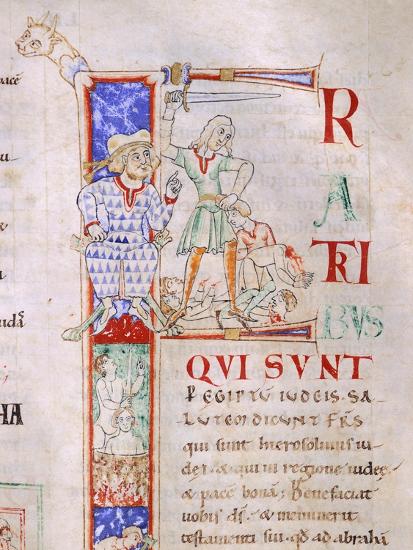 F
R
A
TRI
BVS
QVI SVNT
P EGIPTŪ IUDEIS. SA
LUTEM DICUNT FR̄S
qui sunt hierosolimis iu
dei & qui in regione iudeę
& pacē bonā. Benefaciat
uobis d̄s. & meminerit
testamenti sui. qd̄ ad abrahā
pacē
HA